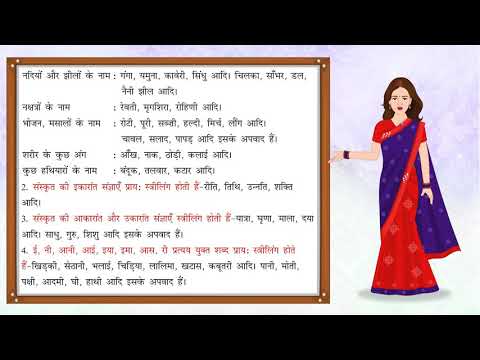 नदियों और झीलों के नाम : गंगा, यमुना, कावेरी, सिंधु आदि। चिलका, साँभर, डल,
नैनी झील आदि।
नक्षत्रों के नाम : रेवती, मृगशिरा, रोहिणी आदि।
भोजन, मसालों के नाम : रोटी, पूरी, सब्ज़ी, हल्दी, मिर्च, लौंग आदि।
चावल, सलाद, पापड़ आदि इसके अपवाद हैं।
शरीर के कुछ अंग : आँख, नाक, ठोड़ी, कलाई आदि।
कुछ हथियारों के नाम : बंदूक, तलवार, कटार आदि।
2. संस्कृत की इकारांत संज्ञाएँ प्राय: स्त्रीलिंग होती हैं-रीति, तिथि, उन्नति, शक्ति
आदि।
3. संस्कृत की आकारांत और उकारांत संज्ञाएँ स्त्रीलिंग होती हैं-यात्रा, घृणा, माला, दया
आदि। साधु, गुरु, शिशु आदि इसके अपवाद हैं।
4. ई, नी, आनी, आई, इया, इमा, आस, री प्रत्यय युक्त शब्द प्राय: स्त्रीलिंग होते
हैं-खिड़की, संठानी, भलाई, चिड़िया, लालिमा, खटास, कबूतरी आदि। पानी, मोती,
पक्षी, आदमी, घी, हाथी आदि इसके अपवाद हैं।